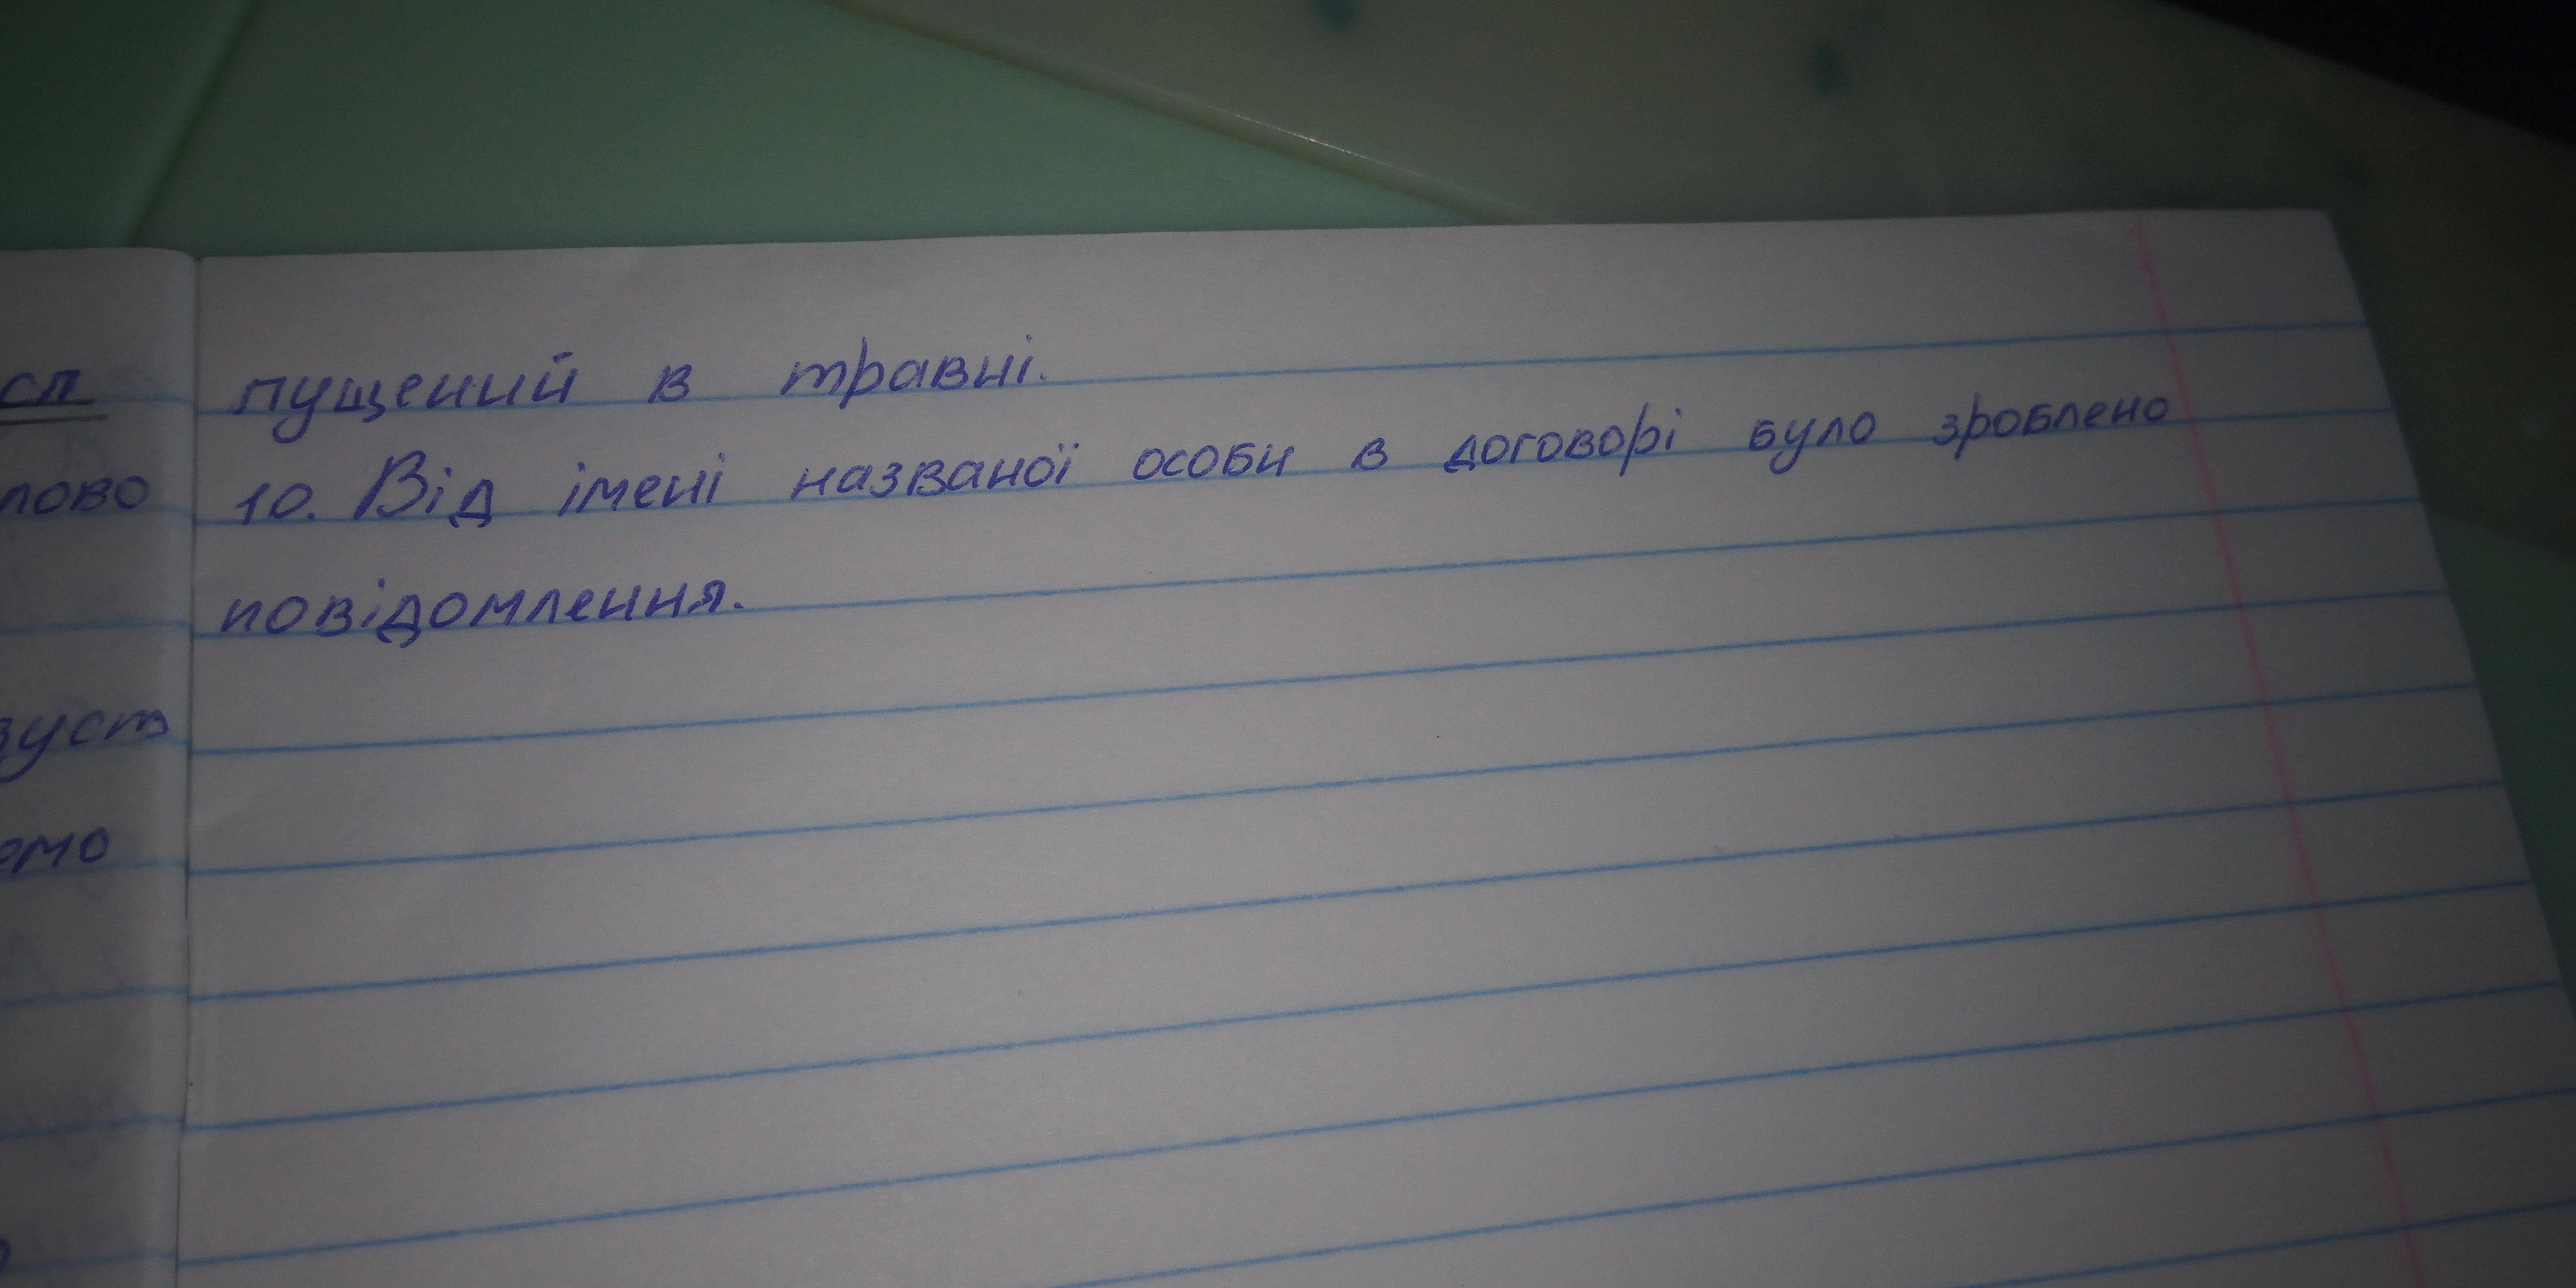 пущений в травні.
10. Від імені названої особи в договорі було зроблено
повідомлення.
сл
лово
зуст
омо